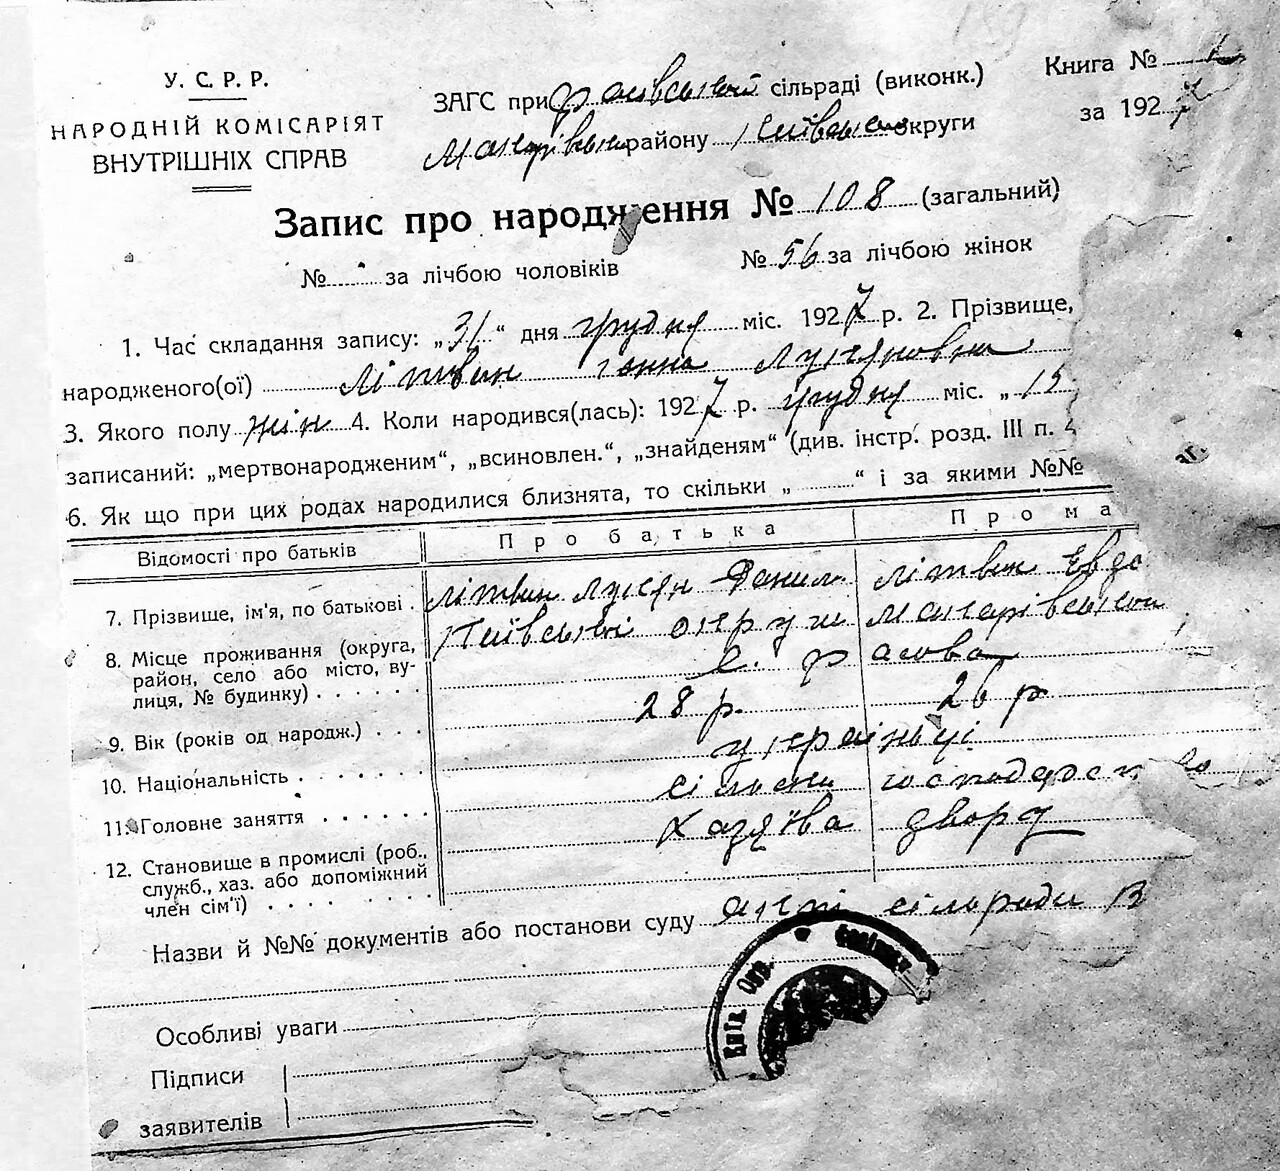 У. С. Р. Р.
НАРОДНІЙ КОМІСАРІЯТ
ВНУТРІШНІХ СПРАВ
ЗАГС при фасівській сільраді (виконк.)
Макарівськ району Київської округи
Книга №
за 1927
Запис про народження № 108 (загальний)
№ за лічбою чоловіків № 56 за лічбою жінок
1. Час складання запису: „31“ дня грудня міс. 1927 р. 2. Прізвище,
народженого(ої) Літвин Ганна Лукяновна
3. Якого полу жін 4. Коли народився(лась): 1927 р. грудня міс. „15
записаний: „мертвонародженим“, „всиновлен.“, „знайденям“ (див. інстр. розд. III п.
6. Як що при цих родах народилися близнята, то скільки „ “ і за якими №№
Відомості про батьків Про батька Про ма
7. Прізвище, ім'я, по батькові . Літвин Лукян Данил Літвин Евдо
8. Місце проживання (округа, район, село або місто, вулиця, № будинку) Київської округи Макарівського
с. Фасова
9. Вік (років од народж.) . . . 28 р. 26 р
10. Національність . . . . . . українці
11. Головне заняття . . . . . . сільське господарство
12. Становище в промислі (роб., служб., хаз. або допоміжний член сім'ї) Хазяїва двору
Назви й №№ документів або постанови суду акт сілради
Особливі уваги
Підписи
заявителів
Київ. Окр.